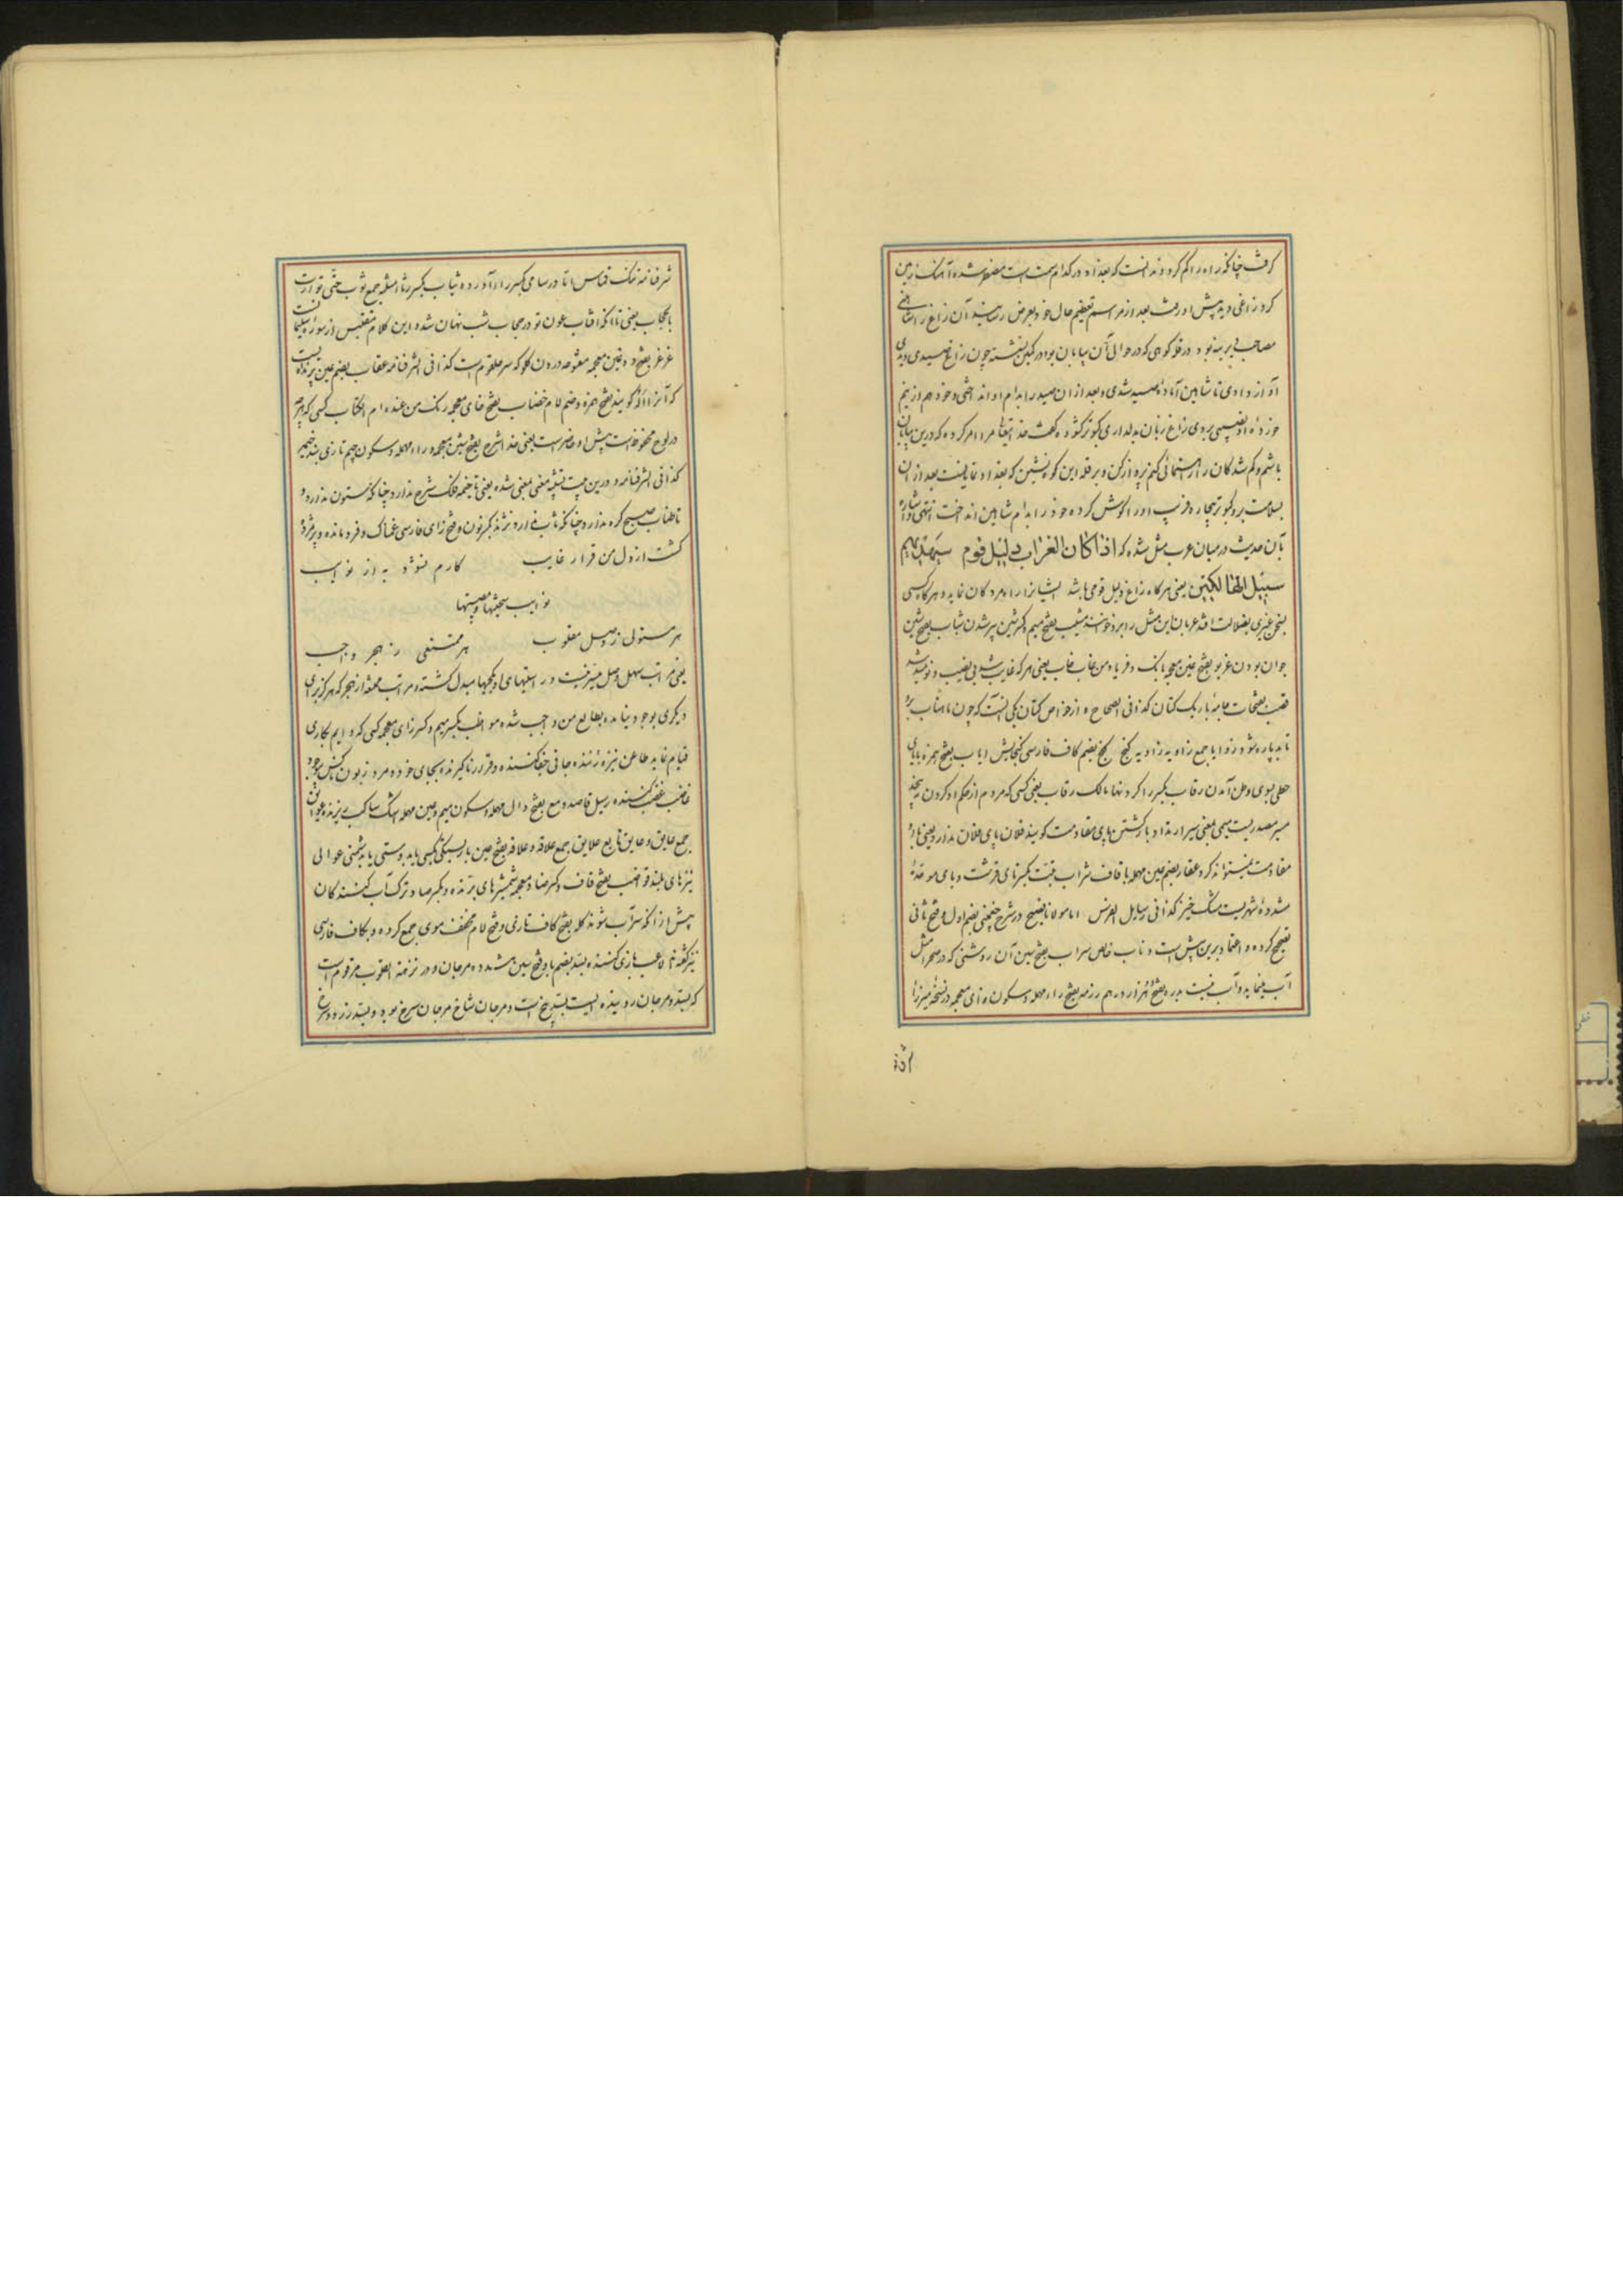 گرفت چنانکه راه را گم کرد و ندانست که بغداد در کدام سمت است مضطر شده آهنگ زمین
کرد زاغی دید پیش او رفت بعد از مراسم تعظیم حال خود بعرض رسانید آن زاغ را شاهینی
مصاحب دیرینه بود در قله کوهی که در حوالی آن بیابان بود در کمین نشسته چون زاغ صیدی دیدی
آواز دادی تا شاهین آماده صید شدی و بعد از آن صید را بدام او انداختی و خود هم از نیم
خورده او نصیبی بردی زاغ زبان بدلداری کبوتر گشوده گفت خدایتعالی مرا امر کرده که درین بیابان
باشم و گم شدگان را رهنمائی کنم پرواز کن و بر قله این کوه بنشین که بغداد نمایانست بعد از آن
بسلامت برو کبوتر بیچاره فریب او را گوش کرده خود را بدام شاهین انداخت انتهی و اشاره
بآن حدیث در میان عرب مثل شده که اذا کان الغراب دلیل قوم سیهدیهم
سبیل الهالکین یعنی هر گاه زاغ دلیل قومی باشد ایشانرا راه مردگان نماید و هرگاه کسی
بسخن غیری بضلالت افتد عربان این مثل را برو خوانند مشیب بفتح میم و کسر شین پیر شدن شباب بفتح شین
جوان بودن غریو بفتح غین معجمه بانگ و فریاد من غاب خاب یعنی هر که غایب شد بی نصیب و نومید شد
قصب بفتحات جامهٔ باریک کتان کذا فی الصحاح و از خواص کتان یکی آنست که چون ماهتاب برو
تابد پاره شود زوایا جمع زاویه زاویه کنج گنج بضم کاف فارسی گنجایش ایاب بفتح همزه بابای
حطی بسوی وطن آمدن رقاب بکسر را گردنها مالک رقاب یعنی کسی که مردم از حکم او گردن نپیچد
سیر مصدریست میمی بمعنی سیر ارندا د بازگشتن پای مقاومت گویند فلان پای فلان ندارد یعنی با او
مقاومت نمیتواند کرد عقار بضم عین مهمله با قاف شراب تبت بکسر تای قرشت و بای موحدهٔ
مشدده شهریست مشک خیز کذا فی رسایل الفرس اما مولانا فصیح در شرح چغمینی بضم اول و فتح ثانی
تصحیح کرده و اعتماد برین بیش است و ناب خالص سراب بفتح سین آن روشنی که در صحرا مثل
آب مینماید و آب نیست بدره بفتح هزار درهم رزمه بفتح راء مهمله و سکون زای معجمه در نسخه میرزا
شرفنامه تنک قماس اما در سامی بکسر را آورده ثیاب بکسر ثاء مثلثه جمع ثوب حتی توارت
بالحجاب یعنی تا آنکه آفتاب عون تو در حجاب شب نهان شده این کلام مقتبس از سوره سلیمانست
غرغر بفتح دو غین معجمه مفتوحه درون گلو که سر حلقوم است کذا فی الشرفنامه عقاب بضم عین پرنده ایست
که آنرا آلُه گویند بفتح همزه و ضم لام خضاب بفتح خای معجمه رنگ من عنده ام الکتاب کسی که هر چه
در لوح محفوظ است پیش او حاضر است یعنی خدا شرج بفتح شین معجمه و راء مهمله و سکون جیم تازی بند خیمه
کذا فی الشرفنامه و درین بیت تشبیه منفی بمنفی شده یعنی تا خیمه فلک شرج ندارد چنانکه ستون ندارد و
تا طناب صبح گره ندارد چنانکه تاب نی ارد نژند بکسر نون و فتح زای فارسی غمناک و فرومانده و پژمرده
گشت از دل من قرار غایب کارم نشود به از نوایب
نوایب سختیها و مصیبتها
هر مسئولی ز وصل مقلوب هر ممتنعی ز هجر واجب
یعنی مراتب سهل وصل میسر نیست و راستیهای او بکجیها مبدل گشته و مراتب ممتنعه از هجر که هرگز برای
دیگری بوجود نیامده بطالع من واجب شده مواظب بکسر میم و کسر زای معجمه کسی که دایم بکاری
قیام نماید طاعن نیزه زننده جانی جفا کننده و قرار ناگیرنده بجای خود مرد زبون ناکس بوجود
غاضب غضب کننده رسیل قاصد دمع بفتح دال مهمله و سکون میم و عین مهمله اشک ساکب ریزنده عوایق
جمع عایق و عایق مانع علایق جمع علاقه و علاقه بفتح عین باز بستگی بکسی یا بدوستی یا بدشمنی عوالی
نیزهای بلند قواضب بفتح قاف و کسر ضاد معجمه شمشیرهای برنده و بکسر صاد ترک آب کنندگان
پیش از آنکه سرآب شوند کله بفتح کاف تازی و فتح لام مخفف موی جمع کرده و بکاف فارسی
نیز گفته اند لاعب بازی کننده بسد بضم با و فتح سین مشدده مرجان و در نزهة القلوب مرقوم است
که بسد و مرجان روینده ایست بسد بیخ است و مرجان شاخ مرجان سرخ بود و بسد زرد و سرخ